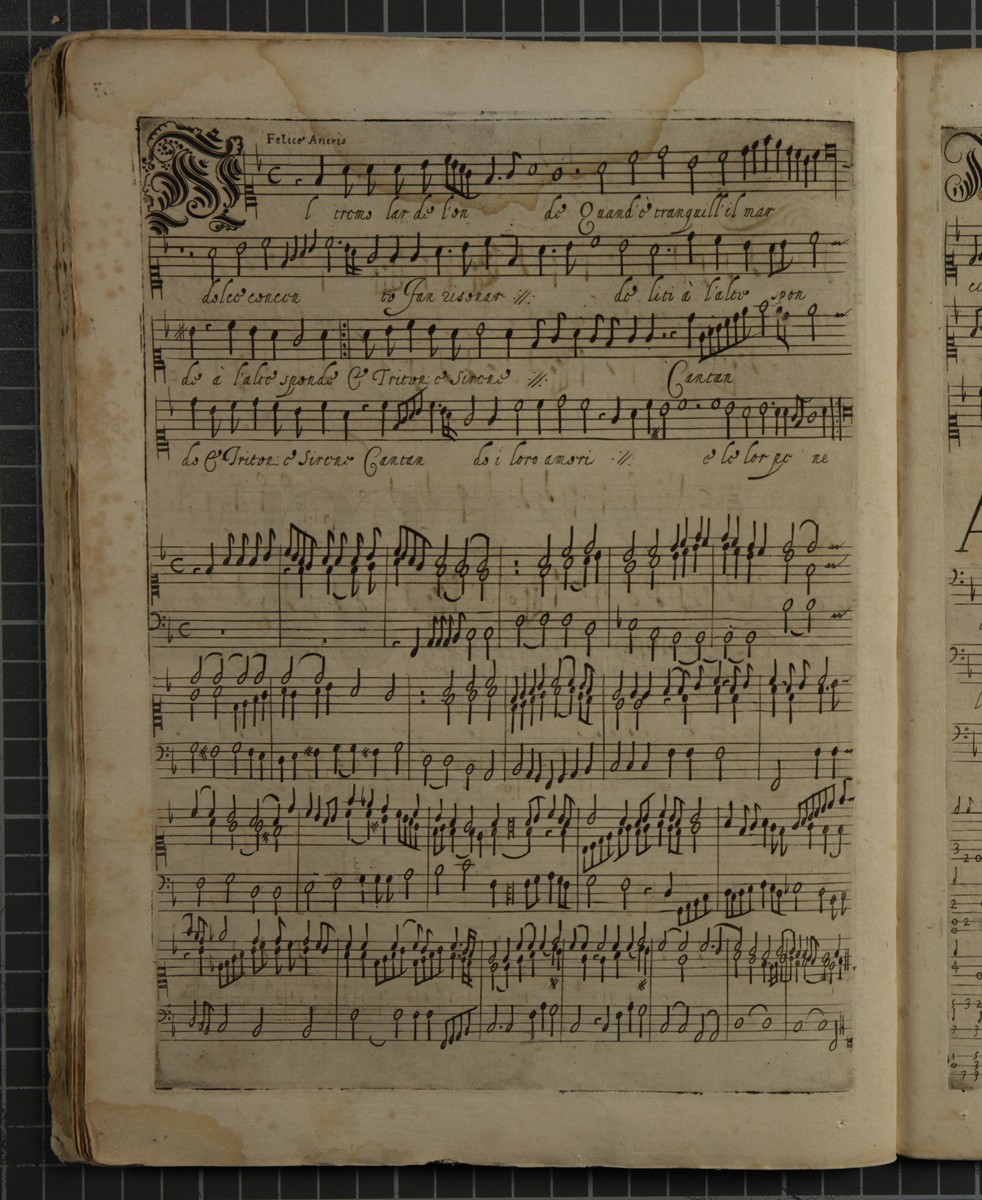 Felice Anerio
Al tremo lar de l'on de Quand'è tranquill'il mar
dolce concen to Fan risonar :||: de liti à l'alte spon
de à l'alte sponde E Triton e Sirene :||: Cantan
do E Triton e Sirene Cantan do i loro amori :||: e le lor pe ne